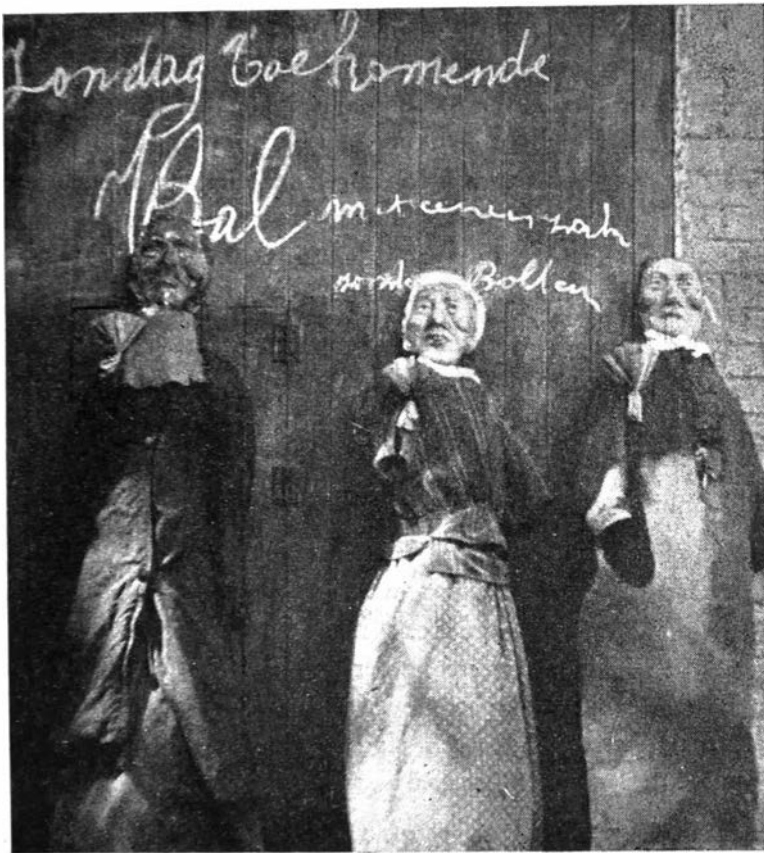 Zondag Toekomende
Bal met eenen zak
zonder Bollen